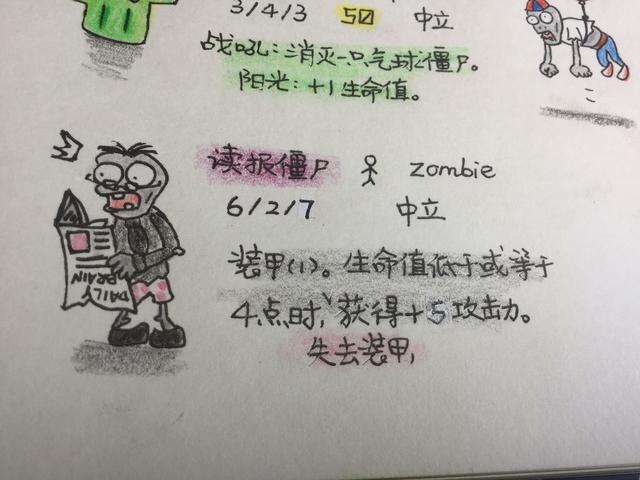 3/4/3 50 中立
战吼：消灭一只气球僵尸。
阳光：+1生命值。
读报僵尸 zombie
6/2/7 中立
装甲(1)。生命值低于或等于
4点时，获得+5攻击力。
失去装甲，
DAILY
BRAIN